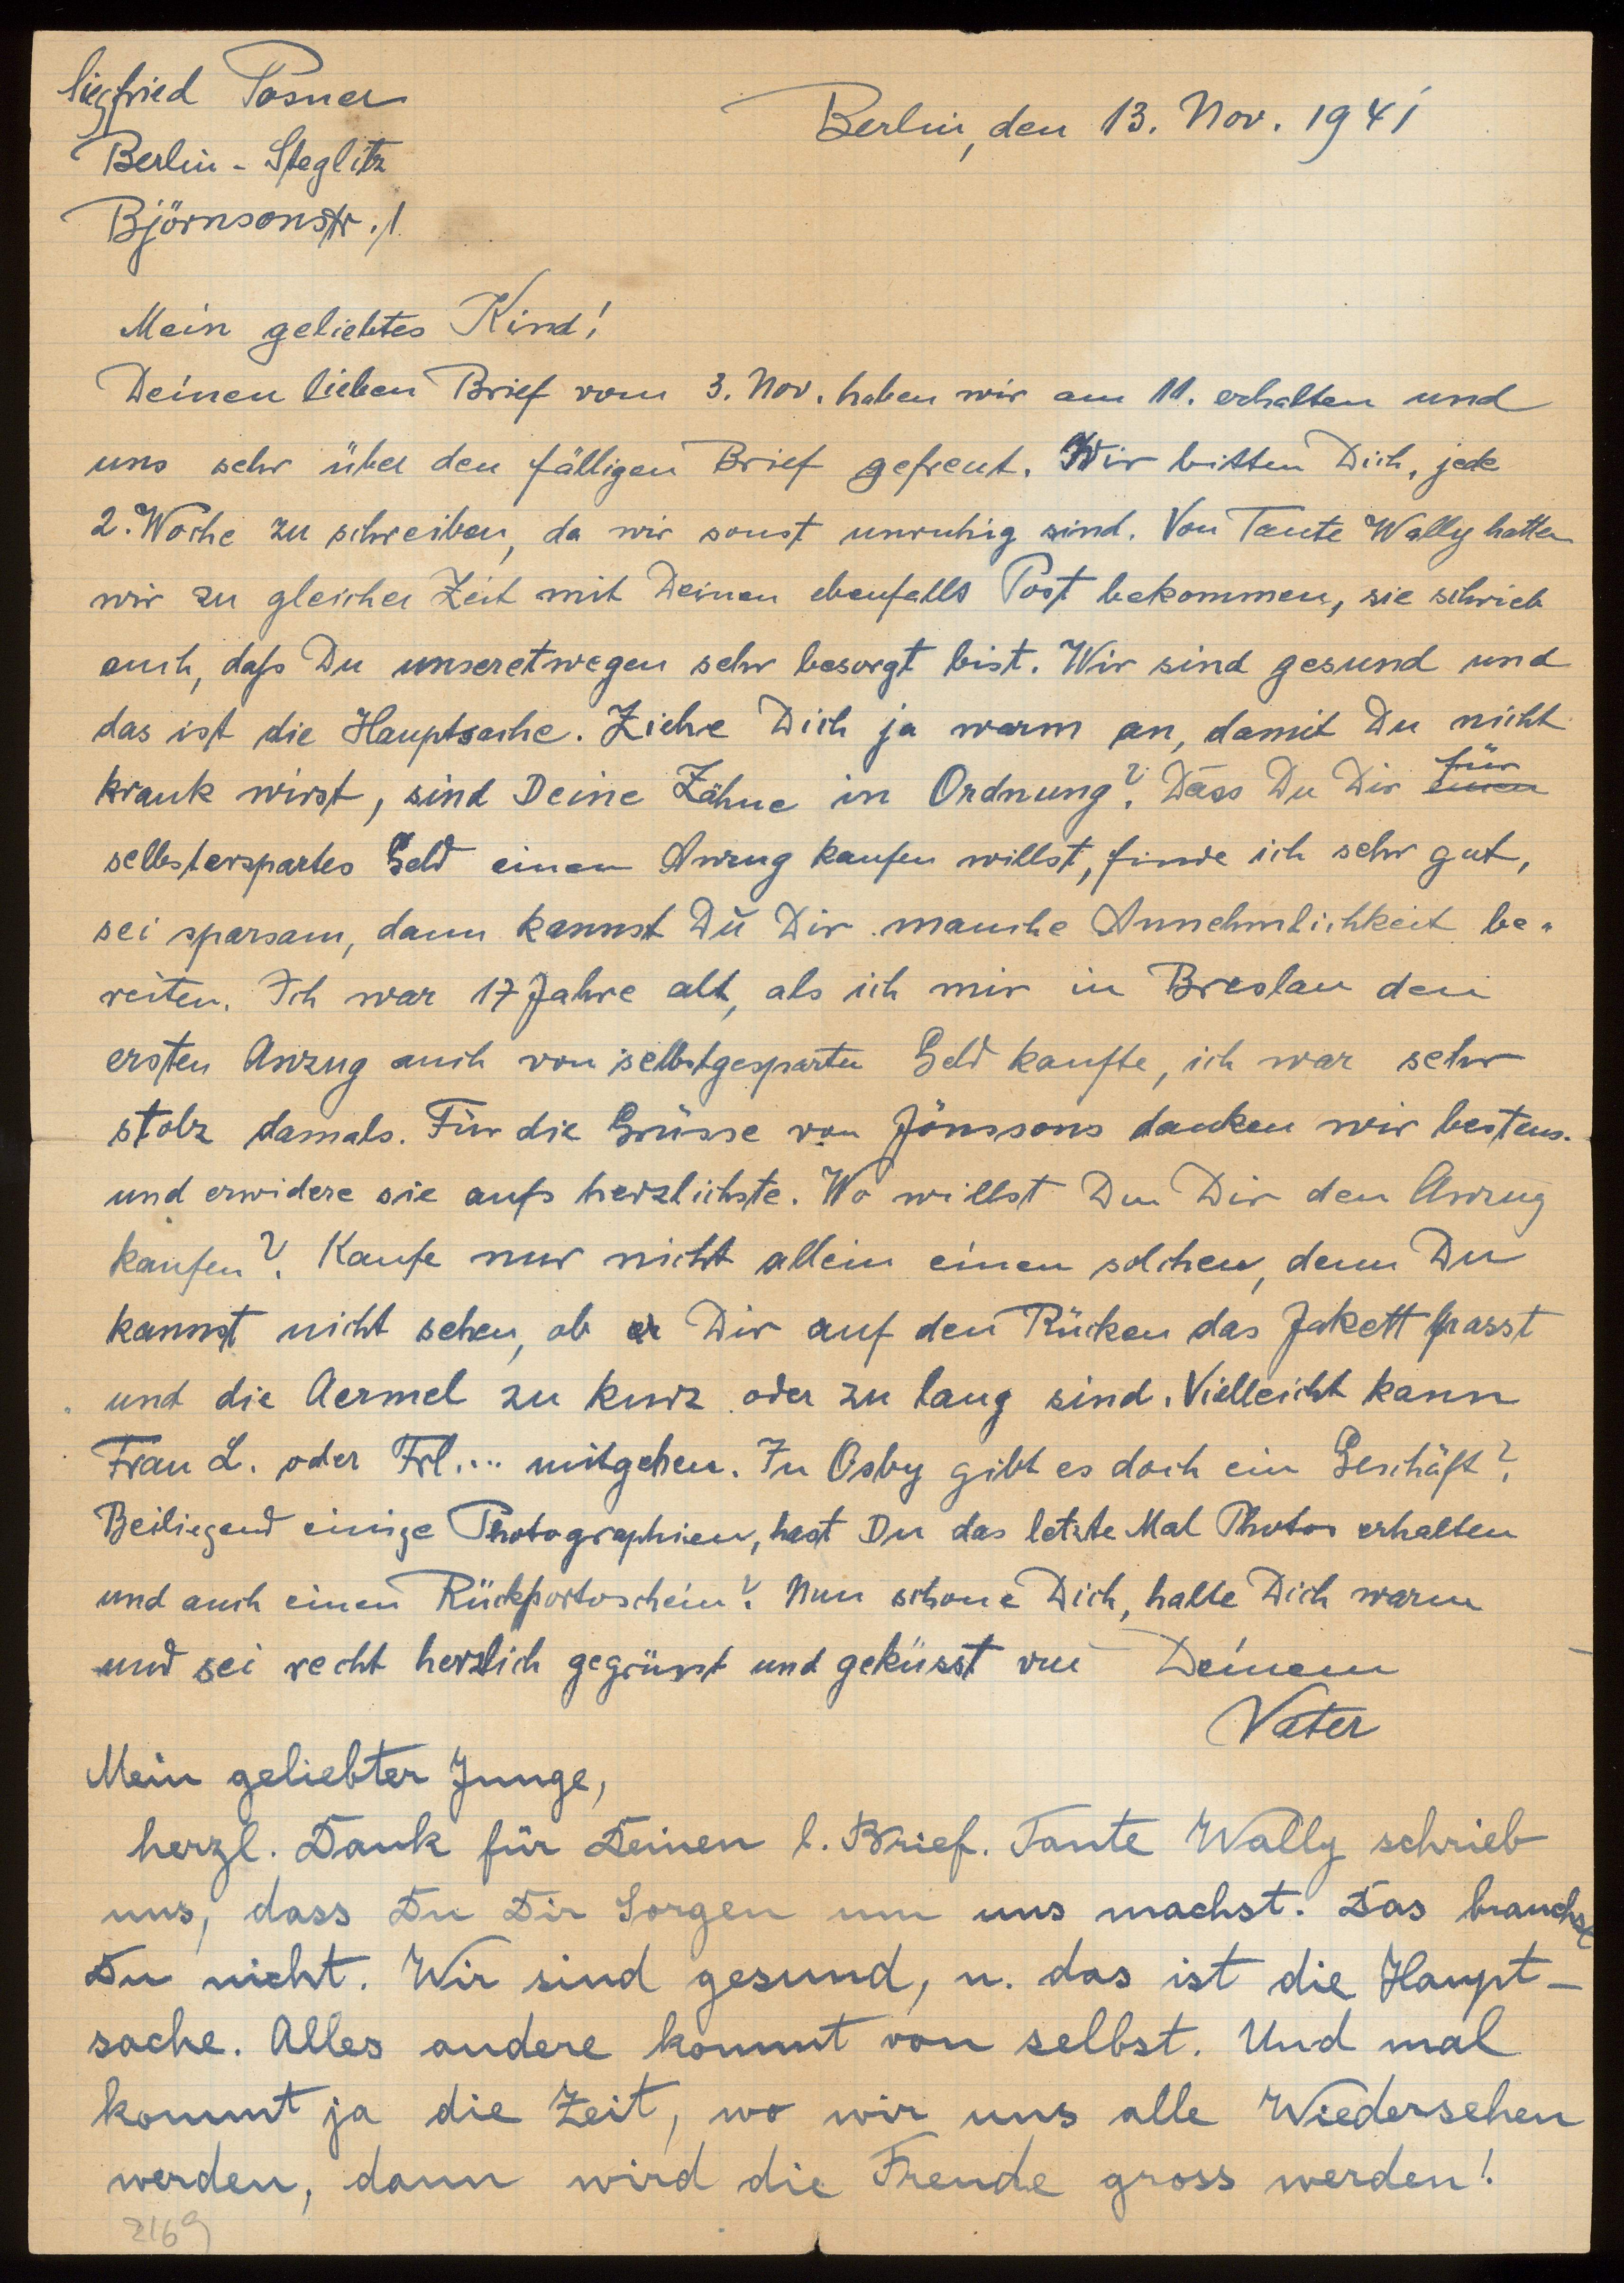 Siegfried Posner
Berlin, den 13. Nov. 1941
Berlin - Steglitz
Björnsonstr. 1
Mein geliebtes Kind!
Deinen lieben Brief vom 3. Nov. haben wir am 11. erhalten und
uns sehr über den fälligen Brief gefreut. Wir bitten Dich, jede
2. Woche zu schreiben, da wir sonst unruhig sind. Von Tante Wally hatten
wir zu gleicher Zeit mit Deinen ebenfalls Post bekommen, sie schrieb
auch, daß Du unseretwegen sehr besorgt bist. Wir sind gesund und
das ist die Hauptsache. Ziehe Dich ja warm an, damit Du nicht
krank wirst, sind Deine Zähne in Ordnung? Dass Du Dir für
selbsterspartes Geld einen Anzug kaufen willst, finde ich sehr gut,
sei sparsam, dann kannst Du Dir manche Annehmlichkeit be-
reiten. Ich war 17 Jahre alt, als ich mir in Breslau den
ersten Anzug auch von selbstgesparten Geld kaufte, ich war sehr
stolz damals. Für die Grüsse von Jönssons danken wir bestens.
und erwidere sie aufs herzlichste. Wo willst Du Dir den Anzug
kaufen? Kaufe nur nicht allein einen solchen, denn Du
kannst nicht sehen, ob er Dir auf den Rücken das Jakett passt
und die Aermel zu kurz oder zu lang sind. Vielleicht kann
Frau L. oder Frl.... mitgehen. In Osby gibt es doch ein Geschäft?
Beiliegend einige Photographien, hast Du das letzte Mal Photos erhalten
und auch einen Rückportoschein? Nun schone Dich, halte Dich warm
und sei recht herzlich gegrüsst und geküsst von Deinem
Vater
Mein geliebter Junge,
herzl. Dank für Deinen l. Brief. Tante Wally schrieb
uns, dass Du Dir Sorgen um uns machst. Das brauchst
Du nicht. Wir sind gesund, u. das ist die Haupt-
sache. Alles andere kommt von selbst. Und mal
kommt ja die Zeit, wo wir uns alle Wiedersehen
werden, dann wird die Freude gross werden!
2169